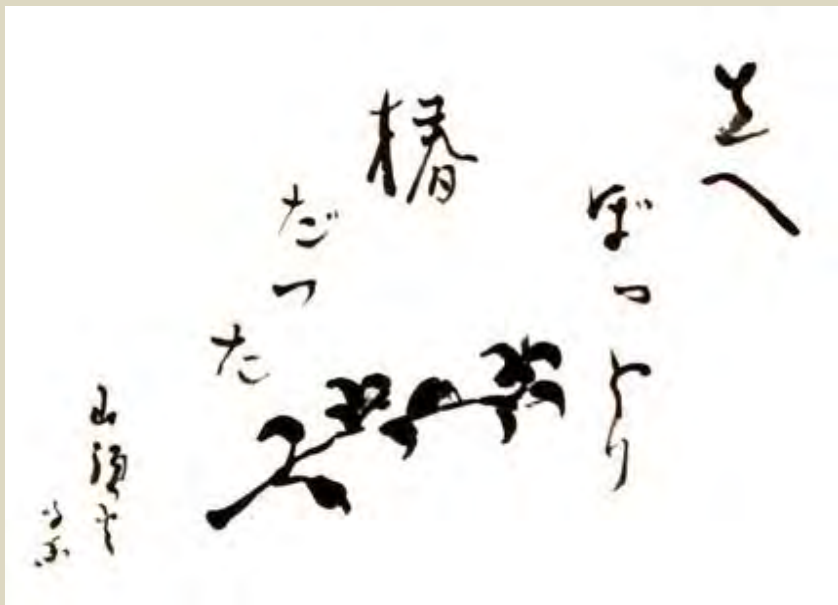 笠へ
ぽっとり
椿
だっ
た
山頭火